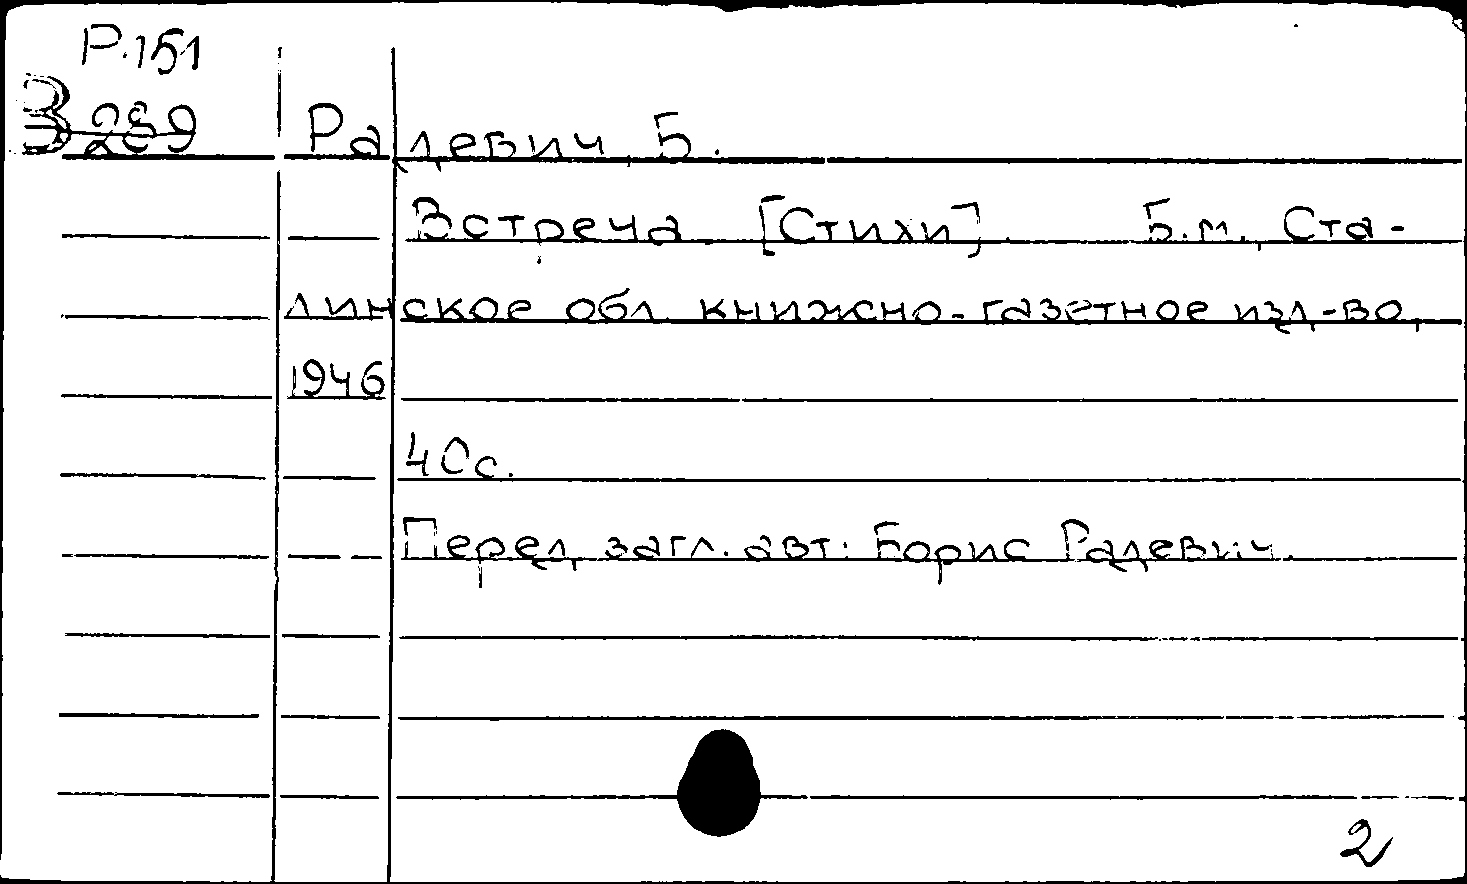 Р.151
В 289
Радевич, Б.
Встреча [Стихи]. Б.м., Ста-
линское обл. книжно-газетное изд-во,
1946
40с.
Перед загл. авт: Борис Радевич.
2